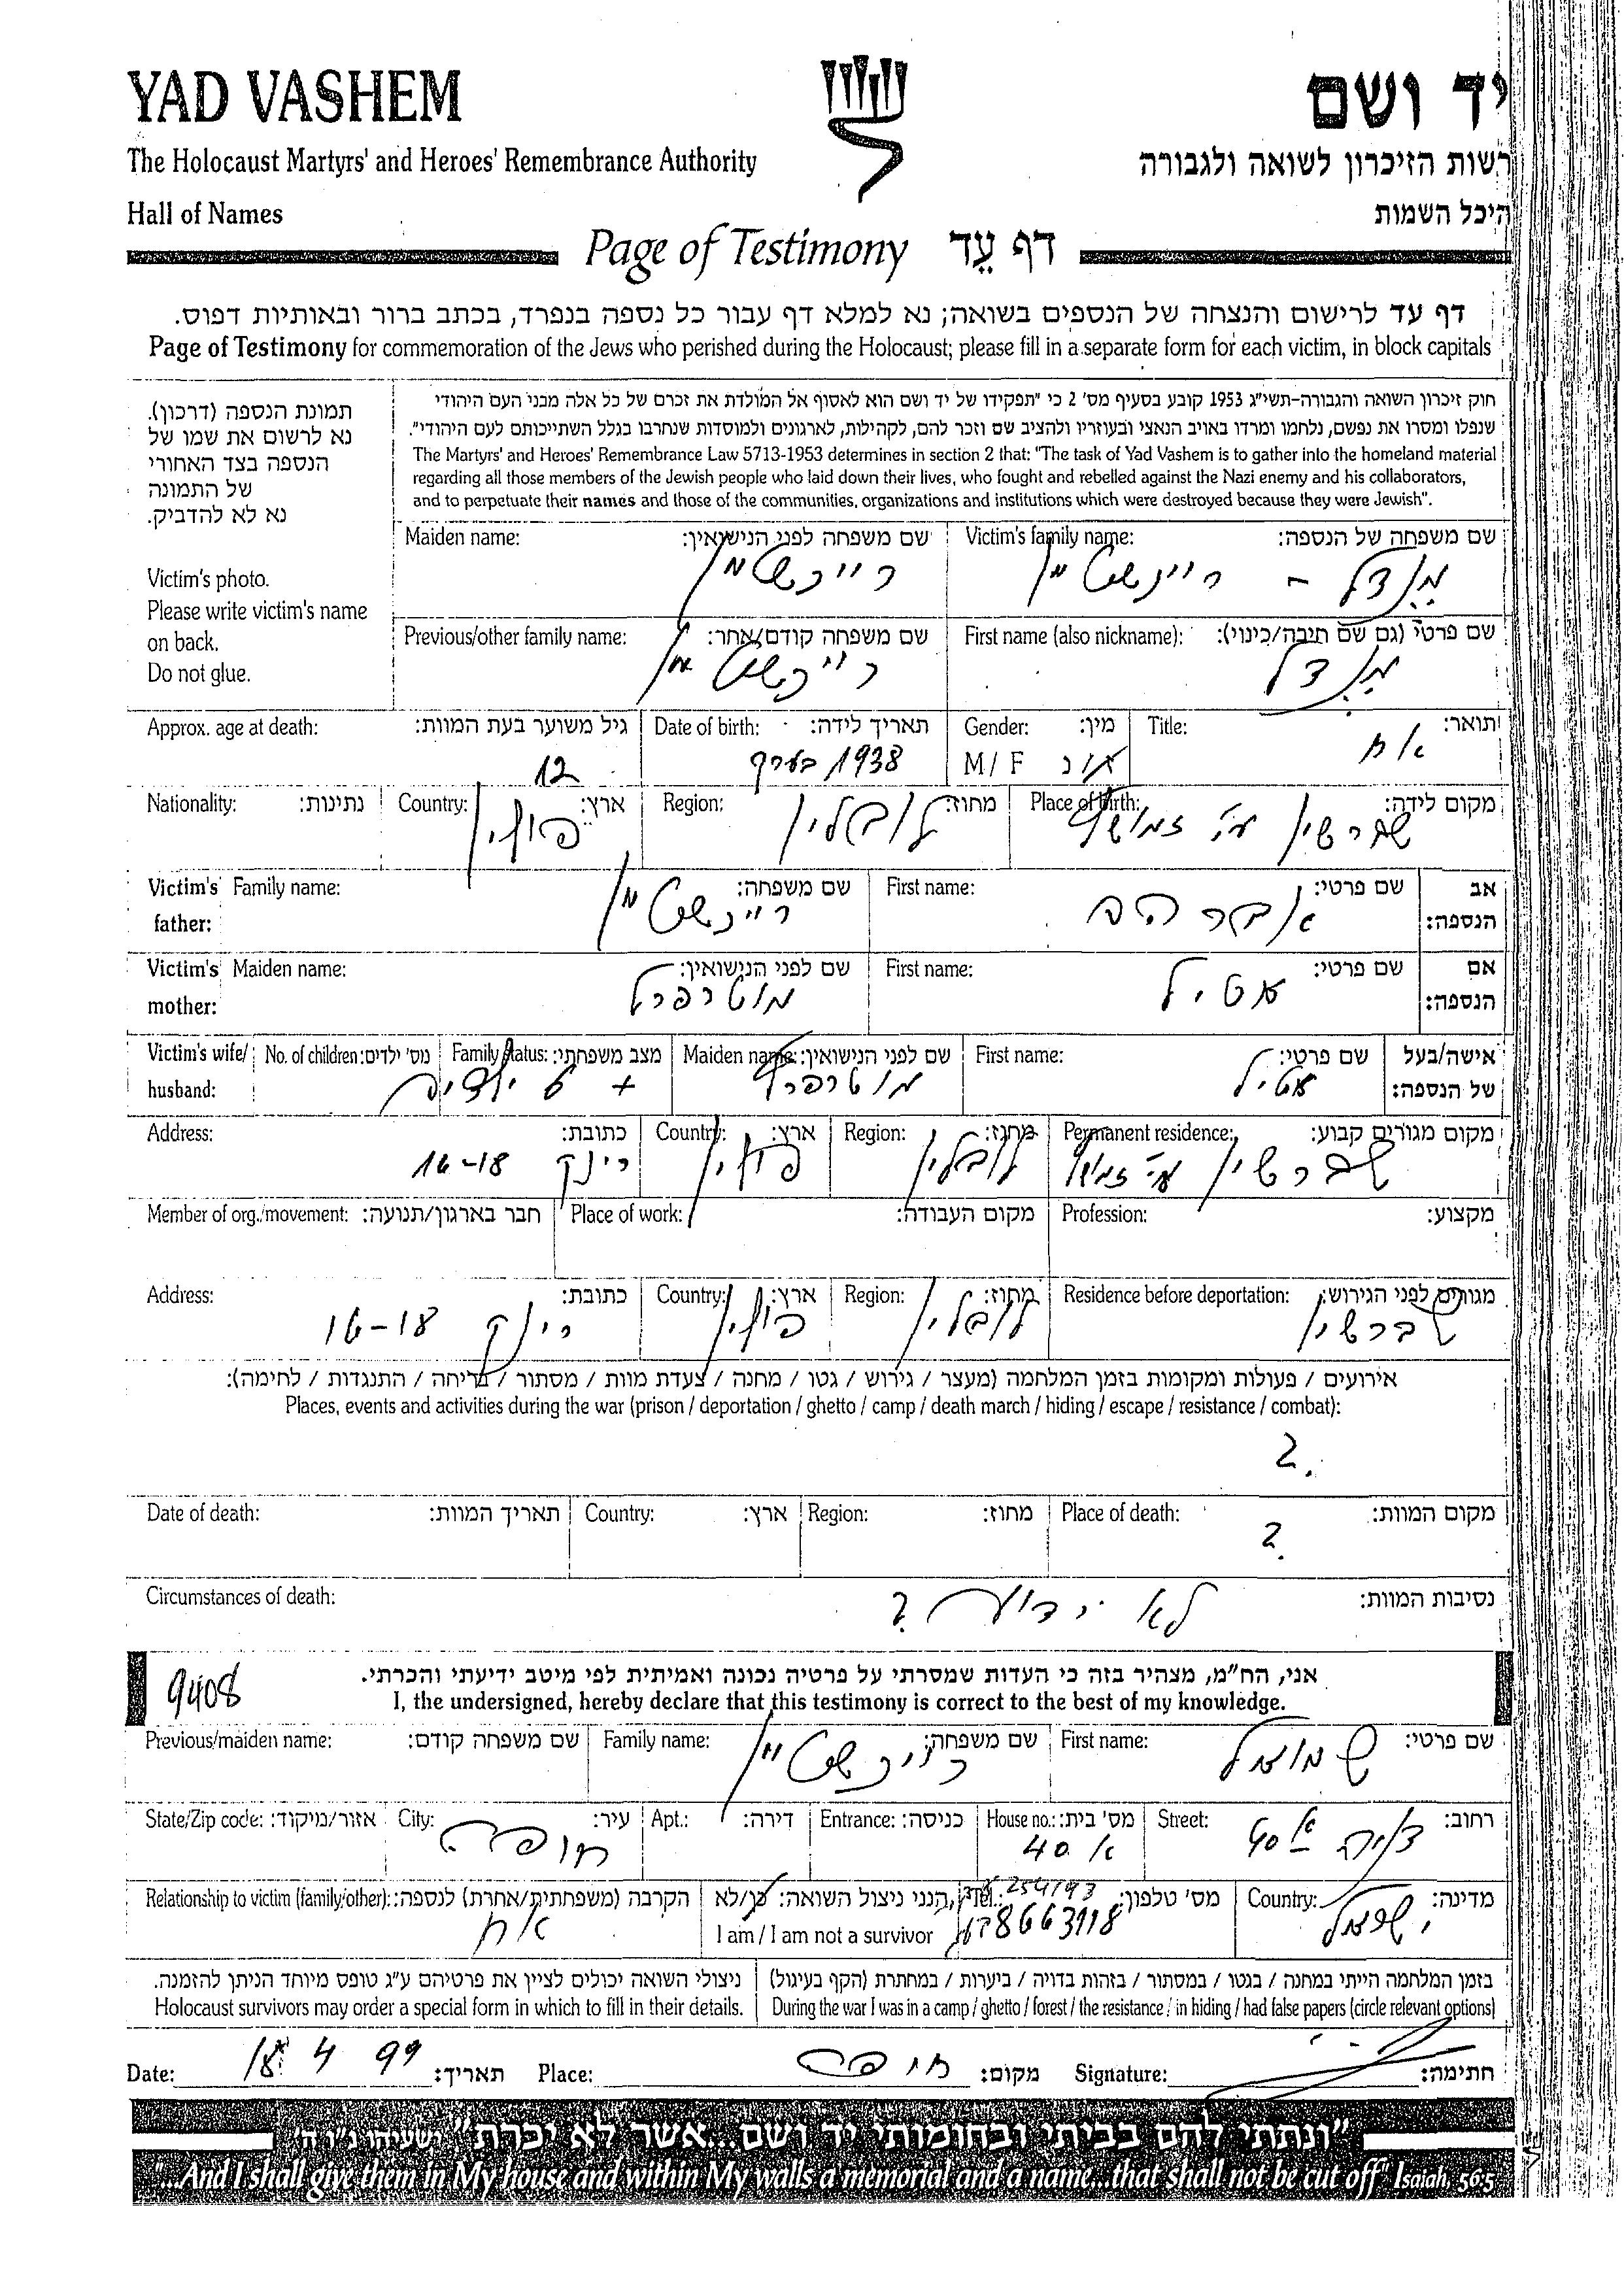 YAD VASHEM
יד ושם
The Holocaust Martyrs' and Heroes' Remembrance Authority
רשות הזיכרון לשואה ולגבורה
Hall of Names
היכל השמות
Page of Testimony דף עֵד
דף עד לרישום והנצחה של הנספים בשואה; נא למלא דף עבור כל נספה בנפרד, בכתב ברור ובאותיות דפוס.
Page of Testimony for commemoration of the Jews who perished during the Holocaust; please fill in a separate form for each victim, in block capitals
תמונת הנספה (דרכון).
נא לרשום את שמו של
הנספה בצד האחורי
של התמונה
נא לא להדביק.
Victim's photo.
Please write victim's name
on back.
Do not glue.
חוק זיכרון השואה והגבורה-תשי"ג 1953 קובע בסעיף מס' 2 כי "תפקידו של יד ושם הוא לאסוף אל המולדת את זכרם של כל אלה מבני העם היהודי
שנפלו ומסרו את נפשם, נלחמו ומרדו באויב הנאצי ובעוזריו ולהציב שם וזכר להם, לקהילות, לארגונים ולמוסדות שנחרבו בגלל השתייכותם לעם היהודי".
The Martyrs' and Heroes' Remembrance Law 5713-1953 determines in section 2 that: "The task of Yad Vashem is to gather into the homeland material
regarding all those members of the Jewish people who laid down their lives, who fought and rebelled against the Nazi enemy and his collaborators,
and to perpetuate their names and those of the communities, organizations and institutions which were destroyed because they were Jewish".
Victim's family name: שם משפחה של הנספה:
מנדל - ריינשטיין
Maiden name: שם משפחה לפני הנישואין:
ריינשטיין
First name (also nickname): שם פרטי (גם שם חיבה/כינוי):
מנדל
Previous/other family name: שם משפחה קודם/אחר:
ריינשטיין
Title: תואר:
אח
Gender: מין:
M / F
Date of birth: תאריך לידה:
1938 בערך
Approx. age at death: גיל משוער בעת המוות:
12
Place of birth: מקום לידה:
שברשין ע"י זמושץ
Region: מחוז:
לובלין
Country: ארץ:
פולין
Nationality: נתינות:
Victim's father: אב הנספה:
First name: שם פרטי:
אברהם
Family name: שם משפחה:
ריינשטיין
Victim's mother: אם הנספה:
First name: שם פרטי:
אטיל
Maiden name: שם לפני הנישואין:
מוטרפרל
Victim's wife/husband: אישה/בעל של הנספה:
First name: שם פרטי:
אטיל
Maiden name: שם לפני הנישואין:
מוטרפרל
Family status: מצב משפחתי:
No. of children: מס' ילדים:
ילדים
Permanent residence: מקום מגורים קבוע:
שברשין ע"י זמושץ
Region: מחוז:
לובלין
Country: ארץ:
פולין
Address: כתובת:
רינק 16-18
Profession: מקצוע:
Place of work: מקום העבודה:
Member of org./movement: חבר בארגון/תנועה:
Residence before deportation: מגורים לפני הגירוש:
שברשין
Region: מחוז:
לובלין
Country: ארץ:
פולין
Address: כתובת:
רינק 16-18
אירועים / פעולות ומקומות בזמן המלחמה (מעצר / גירוש / גטו / מחנה / צעדת מוות / מסתור / בריחה / התנגדות / לחימה):
Places, events and activities during the war (prison / deportation / ghetto / camp / death march / hiding / escape / resistance / combat):
?
Place of death: מקום המוות:
?
Region: מחוז:
Country: ארץ:
Date of death: תאריך המוות:
Circumstances of death: נסיבות המוות:
לא ידוע ?
9408
אני, הח"מ, מצהיר בזה כי העדות שמסרתי על פרטיה נכונה ואמיתית לפי מיטב ידיעתי והכרתי.
I, the undersigned, hereby declare that this testimony is correct to the best of my knowledge.
First name: שם פרטי:
שמואל
Family name: שם משפחה:
ריינשטיין
Previous/maiden name: שם משפחה קודם:
Street: רחוב:
40 א
House no.: מס' בית:
40 א
Entrance: כניסה:
Apt.: דירה:
City: עיר:
חיפה
State/Zip code: אזור/מיקוד:
Country: מדינה:
ישראל
Tel.: מס' טלפון:
254193
8663118
הנני ניצול השואה: כן/לא
I am / I am not a survivor
Relationship to victim (family/other): הקרבה (משפחתית/אחרת) לנספה:
אח
בזמן המלחמה הייתי במחנה / בגטו / במסתור / בזהות בדויה / ביערות / במחתרת (הקף בעיגול)
During the war I was in a camp / ghetto / forest / the resistance / in hiding / had false papers (circle relevant options)
ניצולי השואה יכולים לציין את פרטיהם ע"ג טופס מיוחד הניתן להזמנה.
Holocaust survivors may order a special form in which to fill in their details.
Date: 18 4 99 תאריך:
Place: חיפה מקום:
Signature: חתימה:
"ונתתי להם בביתי ובחומותי יד ושם...אשר לא יכרת" ישעיהו נ"ו ה'
"...And I shall give them in My house and within My walls a memorial and a name...that shall not be cut off" Isaiah 56:5